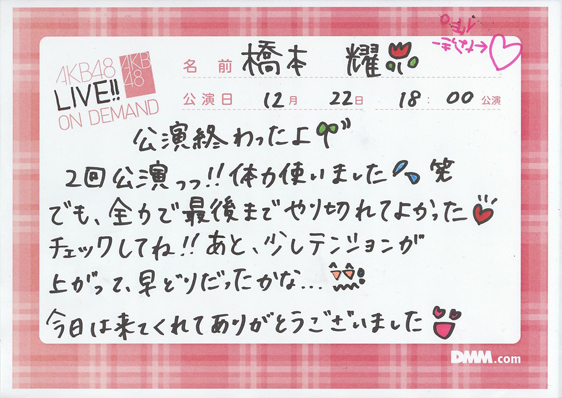 AKB48
LIVE!!
ON DEMAND
AKB
48
名前 橋本 耀
公演日 12月 22日 18:00 公演
公演終わったよ
2回公演っっ!!体力使いました 笑
でも、全力で最後までやり切れてよかった
チェックしてね!!あと、少しテンションが
上がって、早どりだったかな...
今日は来てくれてありがとうございました
DMM.com